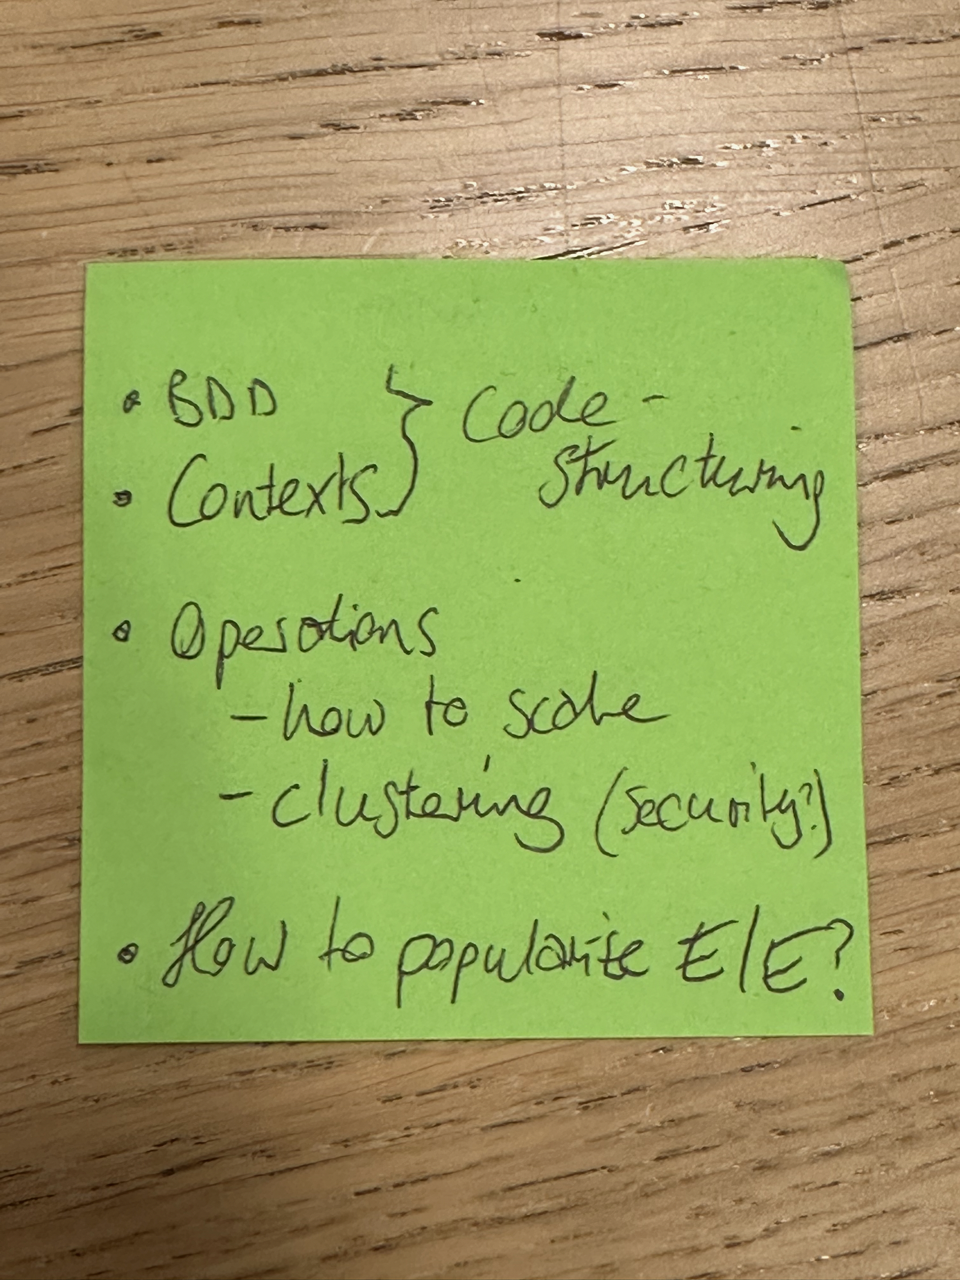 • BDD } Code-
• Contexts } structuring
• Operations
- how to scale
- clustering (security?)
• How to popularize E/E?